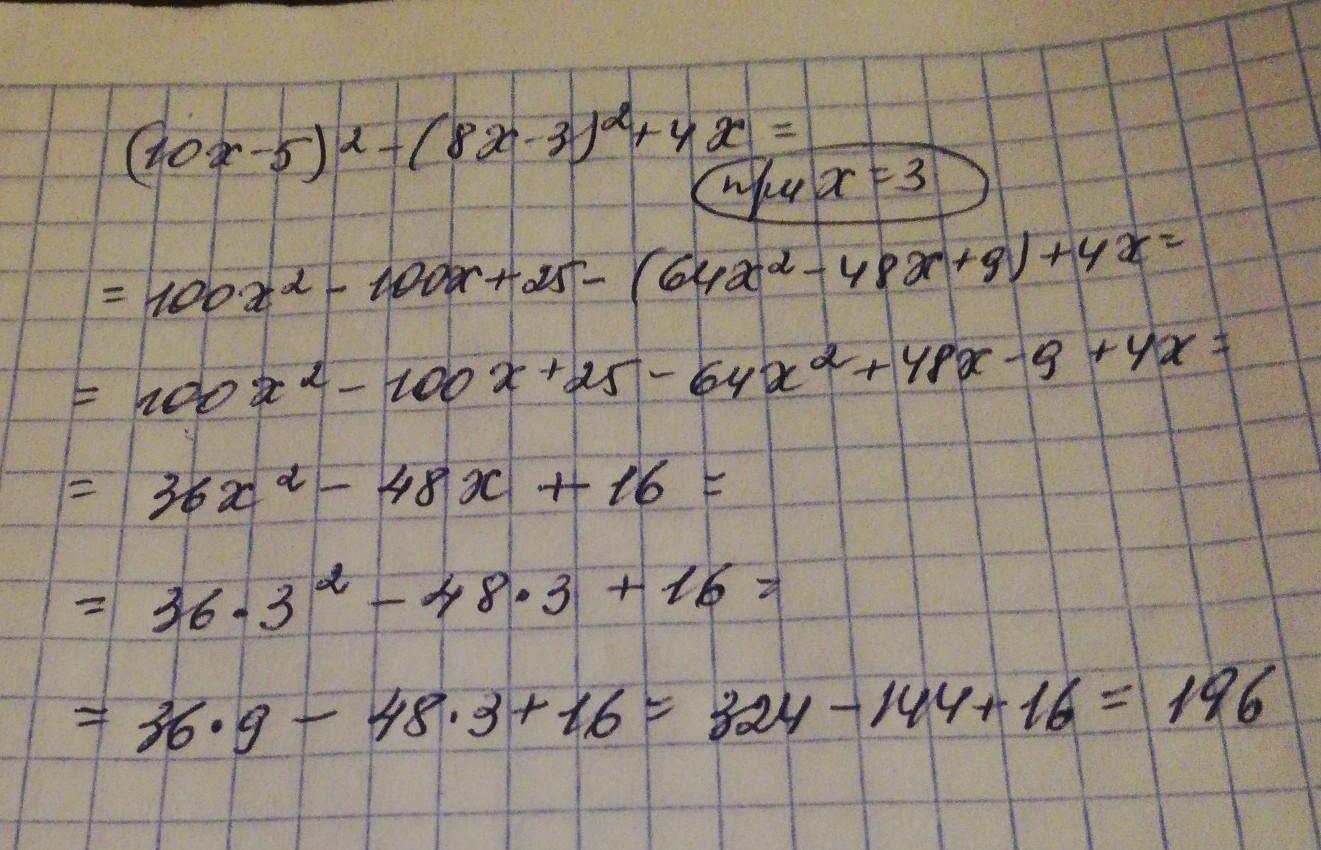 (10x-5)²-(8x-3)²+4x=
при x=3
=100x²-100x+25-(64x²-48x+9)+4x=
=100x²-100x+25-64x²+48x-9+4x=
=36x²-48x+16=
=36·3²-48·3+16=
=36·9-48·3+16=324-144+16=196